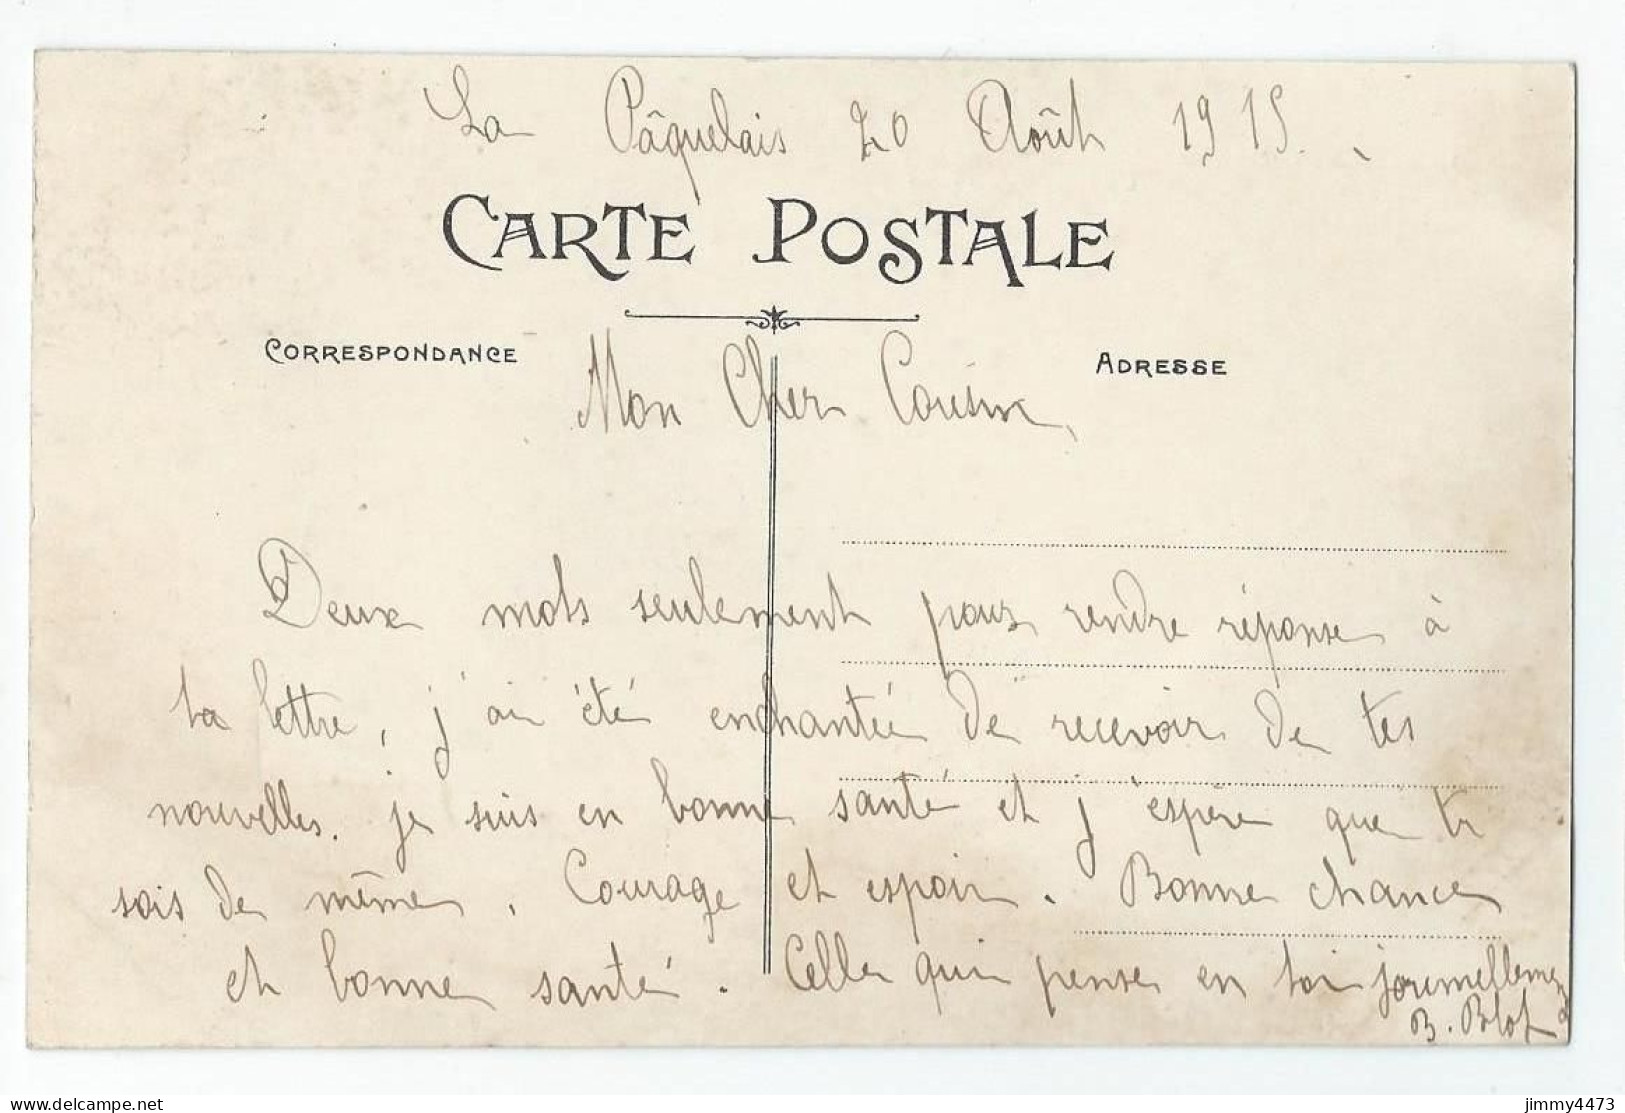 La Pâquelais 20 Août 1915.
CARTE POSTALE
CORRESPONDANCE
ADRESSE
Mon Cher Cousin,
Deux mots seulement pour rendre réponse à
ta lettre, j'ai été enchantée de recevoir de tes
nouvelles. je suis en bonne santé et j'espère que tu
sois de même. Courage et espoir. Bonne chance
et bonne santé. Celle qui pense en toi journellement
B. Blot
delcampe.net
jimmy4473